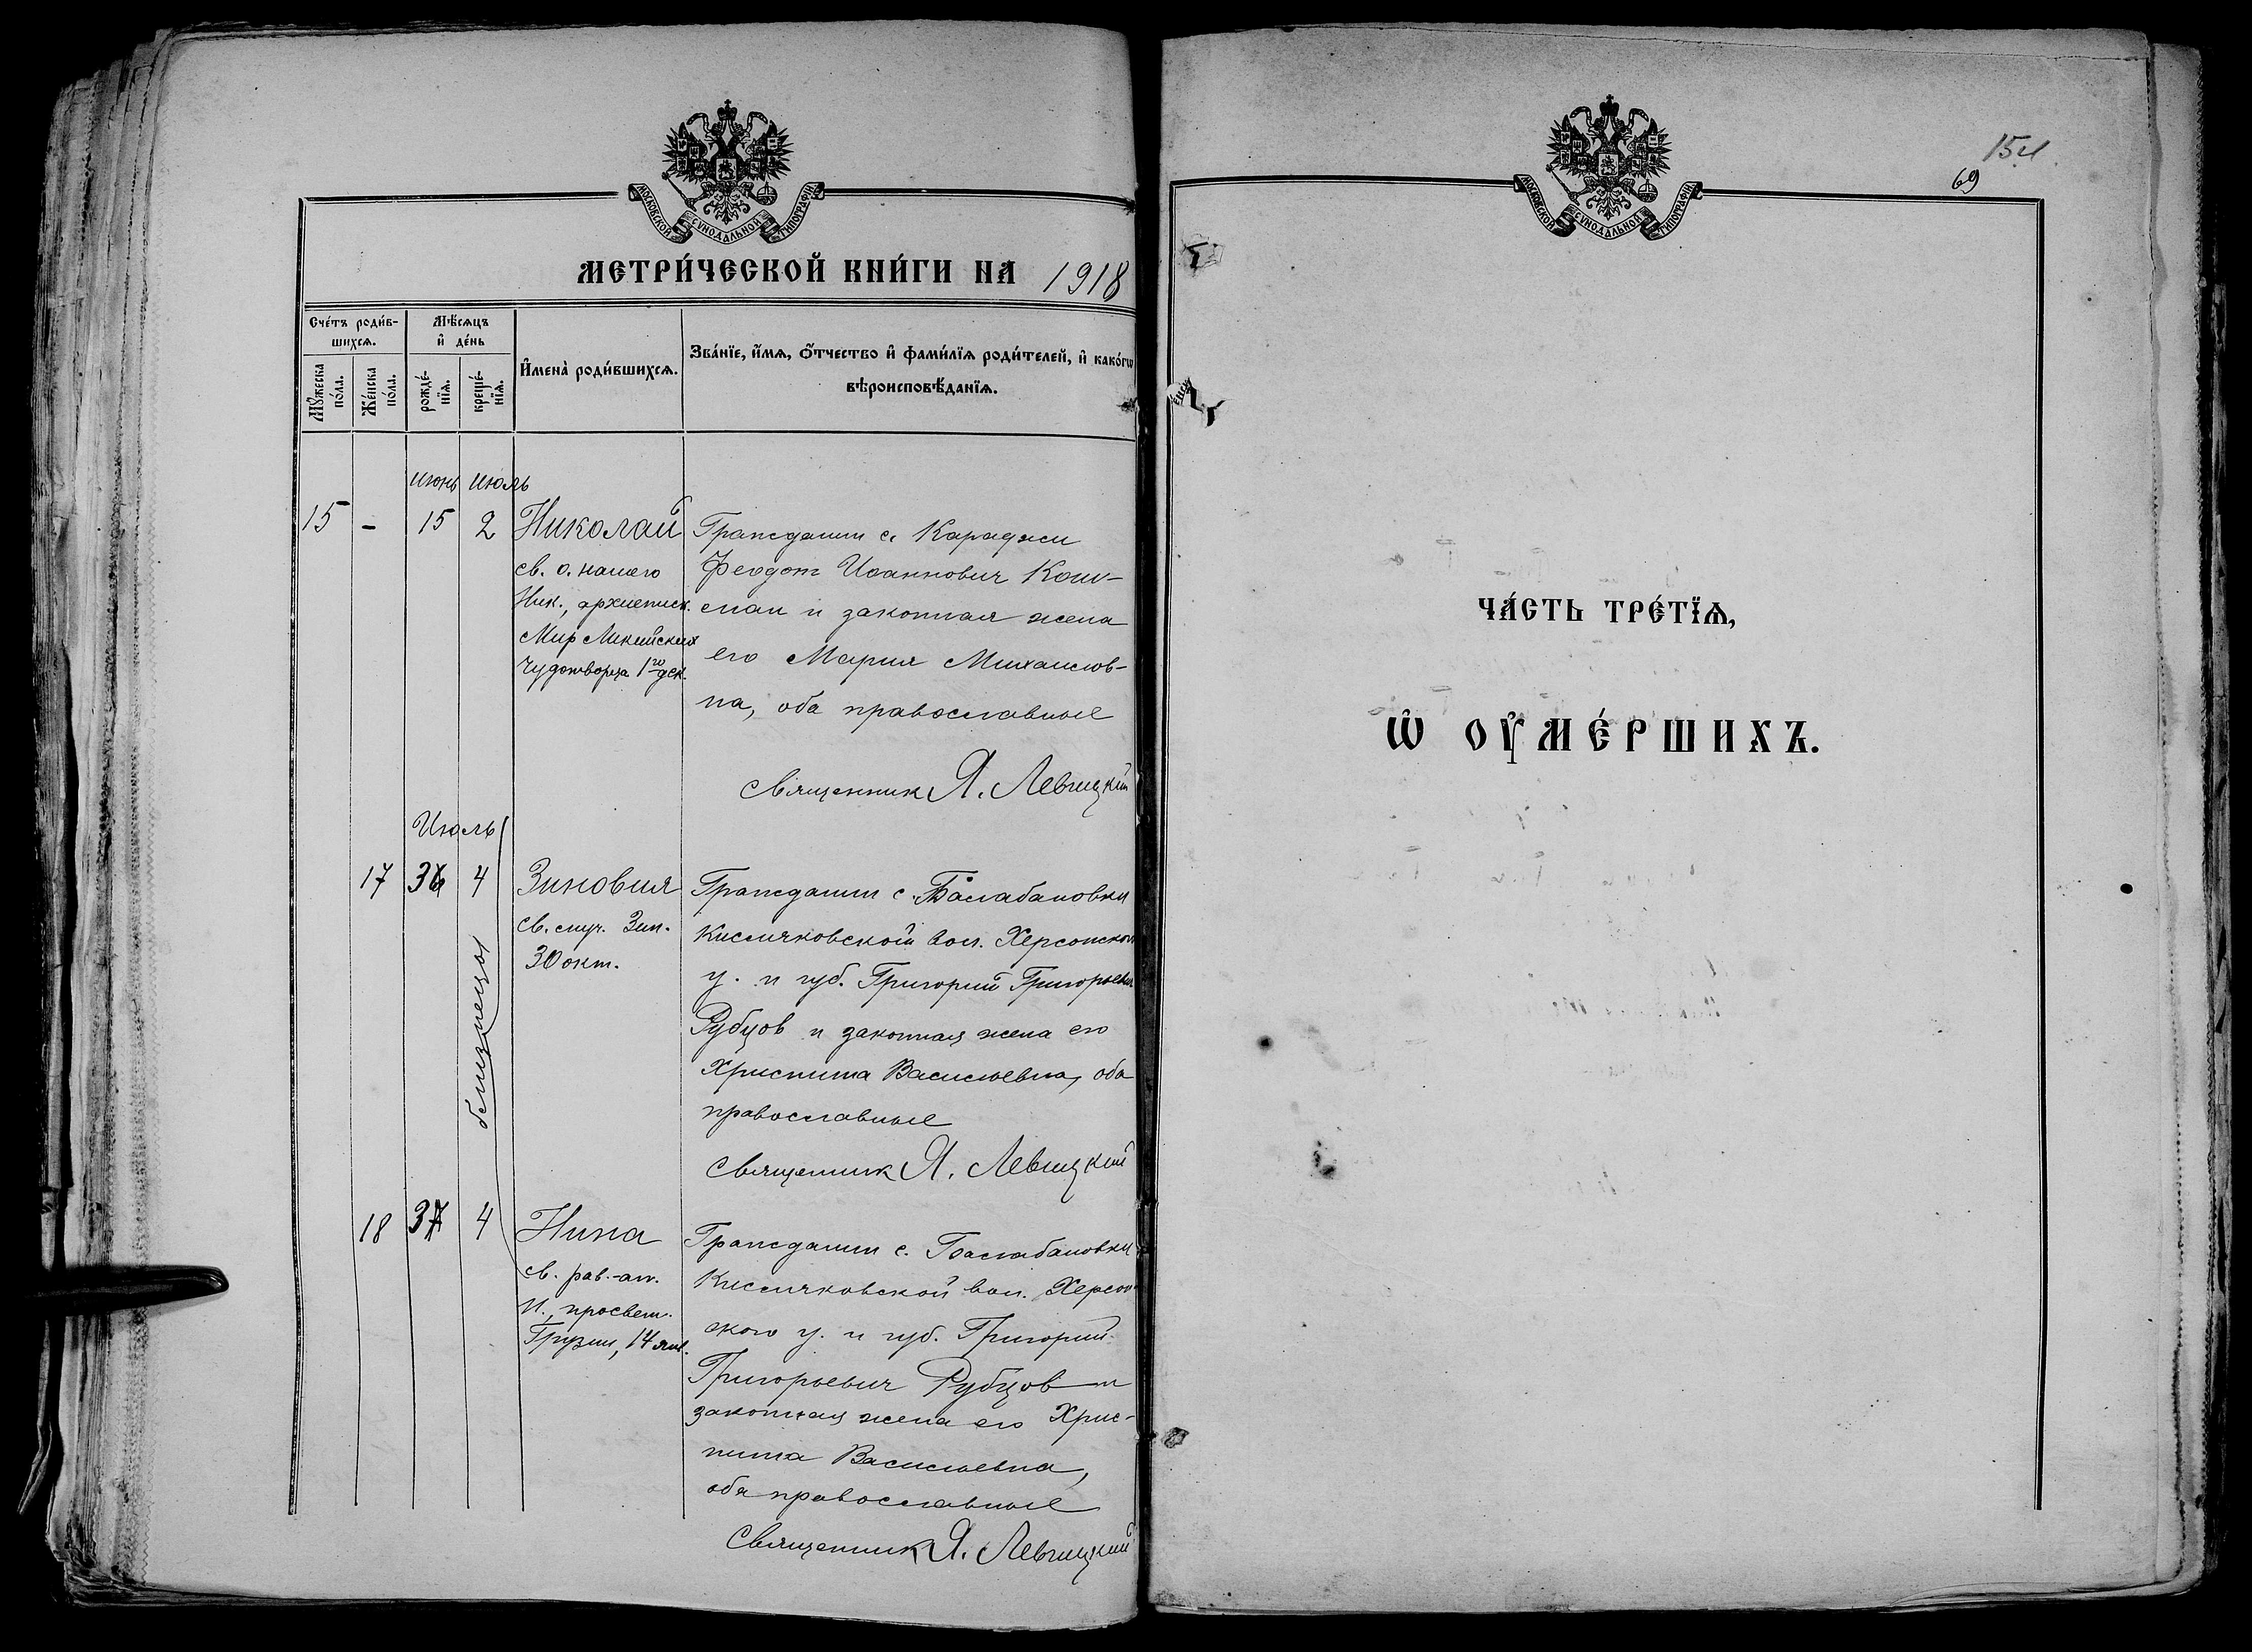 МОСКОВСКОЙ СУНОДАЛЬНОЙ ТИПОГРАФІИ
МЕТРИ́ЧЕСКОЙ КНИ́ГИ НА 1918
Сче́тъ роди́в-
шихсѧ.
Мѹ́жеска
по́ла.
Же́нска
по́ла.
Мѣ́сѧцъ
и҆ де́нь
рожде́-
нїѧ.
креще́-
нїѧ.
И҆мена̀ роди́вшихсѧ.
Зва́нїе, и҆́мѧ, ѻ҆́тчество и҆ фами́лїѧ роди́телей, и҆ како́гѡ
вѣроисповѣ́данїѧ.
июнь июль
15 - 15 2 Николай
св. о. нашего
Ник., архиеписк.
Мир Ликийских
чудотворца 1го дек.
Гражданин с. Караджи
Феодот Иоаннович Кош-
ман и законная жена
его Мария Михаилов-
на, оба православные
Священник Я. Левицкий
Июль
17 3 4 Зиновия
св. муч. Зин.
30 окт.
близнецы
Гражданин с. Балабановки
Кисляковской вол. Херсонского
у. и губ. Григорий Григорьевич
Рубцов и законная жена его
Христина Васильевна, оба
православные
Священник Я. Левицкий
18 3 4 Нина
св. рав.-ап.
Н., просвет.
Грузии, 14 янв.
Гражданин с. Балабановки
Кисляковской вол. Херсон-
ского у. и губ. Григорий
Григорьевич Рубцов и
законная жена его Хрис-
тина Васильевна,
оба православные
Священник Я. Левицкий
154
69
МОСКОВСКОЙ СУНОДАЛЬНОЙ ТИПОГРАФІИ
ЧА́СТЬ ТРЕ́ТЇѦ,
Ѡ҆ ОУ҆МЕ́РШИХЪ.